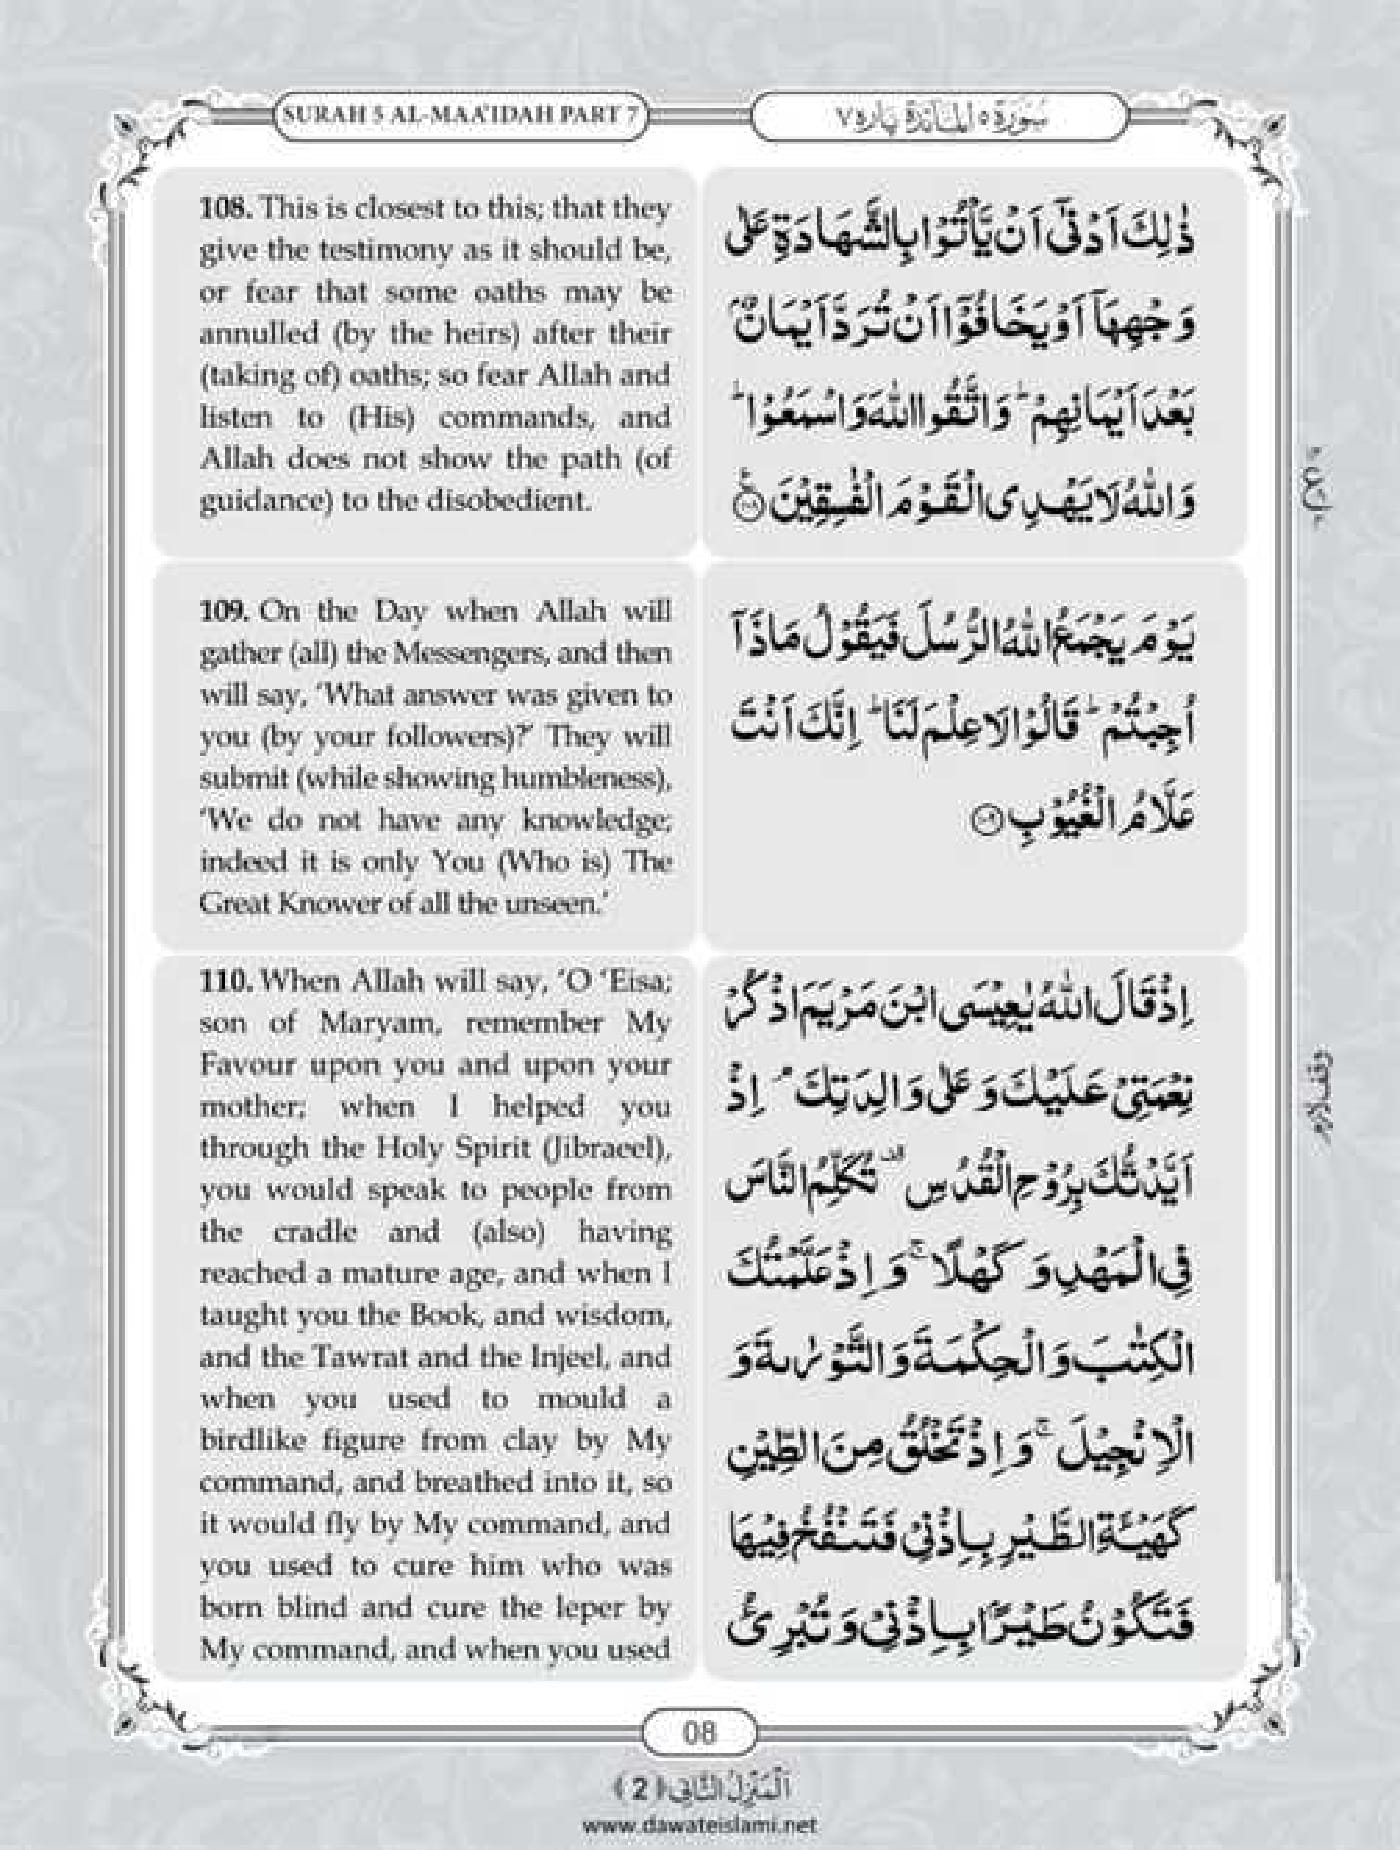 SURAH 5 AL-MAA'IDAH PART 7
سُوْرَة ٥ اَلْمَآئِدَة پاره ٧
108. This is closest to this; that they
give the testimony as it should be,
or fear that some oaths may be
annulled (by the heirs) after their
(taking of) oaths; so fear Allah and
listen to (His) commands, and
Allah does not show the path (of
guidance) to the disobedient.
ذٰلِكَ اَدْنٰۤى اَنْ يَّاْتُوْا بِالشَّهَادَةِ عَلٰى
وَجْهِهَاۤ اَوْ يَخَافُوْۤا اَنْ تُرَدَّ اَيْمَانٌۢ
بَعْدَ اَيْمَانِهِمْ ؕ وَاتَّقُوا اللّٰهَ وَاسْمَعُوْا ؕ
وَاللّٰهُ لَا يَهْدِى الْقَوْمَ الْفٰسِقِيْنَ ۝۱۰۸
109. On the Day when Allah will
gather (all) the Messengers, and then
will say, ‘What answer was given to
you (by your followers)?’ They will
submit (while showing humbleness),
‘We do not have any knowledge;
indeed it is only You (Who is) The
Great Knower of all the unseen.’
يَوْمَ يَجْمَعُ اللّٰهُ الرُّسُلَ فَيَقُوْلُ مَاذَاۤ
اُجِبْتُمْ ؕ قَالُوْا لَا عِلْمَ لَنَا ؕ اِنَّكَ اَنْتَ
عَلَّامُ الْغُيُوْبِ ۝۱۰۹
110. When Allah will say, ‘O ‘Eisa;
son of Maryam, remember My
Favour upon you and upon your
mother; when I helped you
through the Holy Spirit (Jibraeel),
you would speak to people from
the cradle and (also) having
reached a mature age, and when I
taught you the Book, and wisdom,
and the Tawrat and the Injeel, and
when you used to mould a
birdlike figure from clay by My
command, and breathed into it, so
it would fly by My command, and
you used to cure him who was
born blind and cure the leper by
My command, and when you used
اِذْ قَالَ اللّٰهُ يٰعِيْسَى ابْنَ مَرْيَمَ اذْكُرْ
نِعْمَتِىْ عَلَيْكَ وَعَلٰى وَالِدَتِكَ ۘ اِذْ
اَيَّدْتُّكَ بِرُوْحِ الْقُدُسِ ۟ تُكَلِّمُ النَّاسَ
فِى الْمَهْدِ وَكَهْلًا ۚ وَاِذْ عَلَّمْتُكَ
الْكِتٰبَ وَالْحِكْمَةَ وَالتَّوْرٰىةَ وَ
الْاِنْجِيْلَ ۚ وَاِذْ تَخْلُقُ مِنَ الطِّيْنِ
كَهَيْـَٔةِ الطَّيْرِ بِاِذْنِىْ فَتَنْفُخُ فِيْهَا
فَتَكُوْنُ طَيْرًۢا بِاِذْنِىْ وَتُبْرِئُ
وقف لازم
08
اَلْمَنْزِلُ الثَّانِى ﴿2﴾
www.dawateislami.net